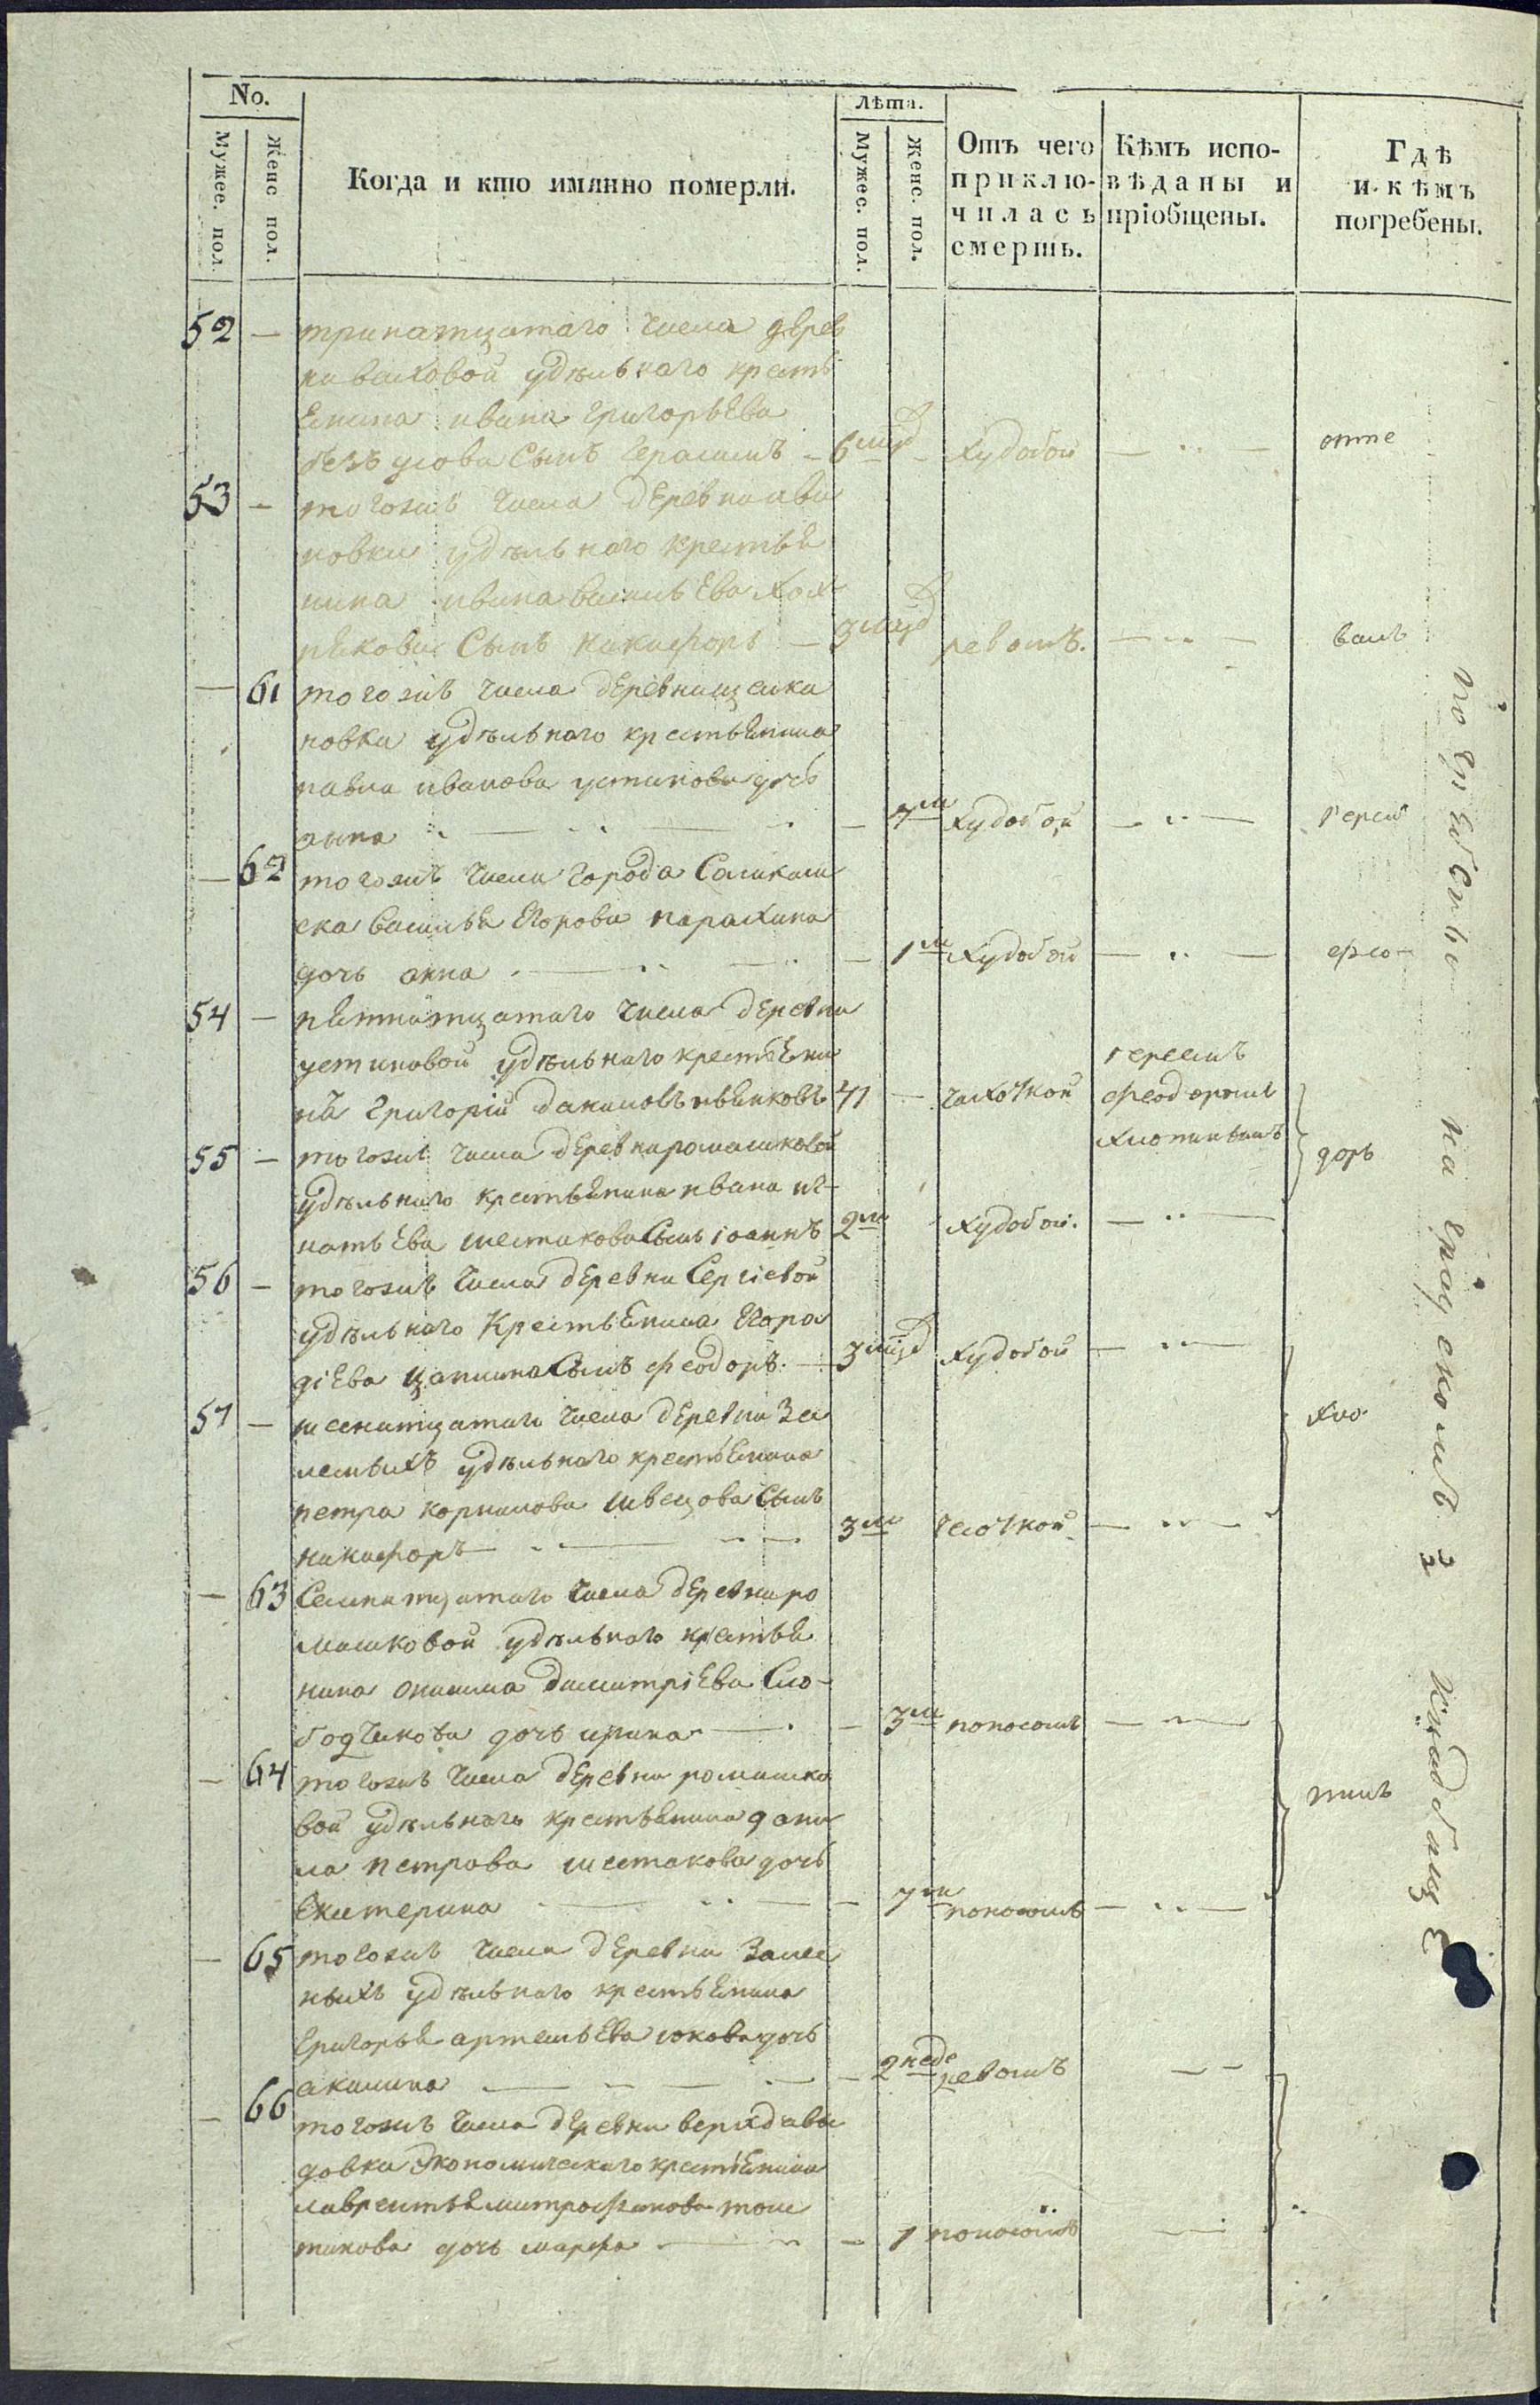 No.
Лѣта.
Мужес. пол.
Женс. пол.
Когда и кто имянно померли.
Мужес. пол.
Женс. пол.
Отъ чего
приклю-
чилась
смерть.
Кѣмъ испо-
вѣданы и
пріобщены.
Гдѣ
и кѣмъ
погребены.
52 — тринатцатаго числа дерев
удѣльнаго кресть
янина ивана григорьева
сынъ герасимъ — 6 мцд — худобой — — отте
53 — тогожъ числа деревни ива
новки удѣльнаго крестья
нина ивана васильева
сынъ никифоръ — 3 мцд ревомъ. — — ваны
— 61 тогожъ числа деревни
новки удѣльнаго крестьянина
павла иванова устинова дочь
анна — — 7 м худобой — — гереи
— 62 тогожъ числа города Соликам
ска василья Егорова
дочь анна — — 1 м худобой — — ѳео
54 — пятнатцатаго числа деревни
устиновой удѣльнаго крестьяни
нъ григорій даниловъ пьянковъ 41 — чахоткой
гереемъ
ѳеодоромъ
хлопинымъ
доръ
55 — тогожъ числа деревни ромашковой
удѣльнаго крестьянина ивана иг-
натьева шестакова сынъ іоаннъ 2 м худобой. — —
56 — тогожъ числа деревни Сергіевой
удѣльнаго Крестьянина Егора
сынъ ѳеодоръ. — 3 мцд худобой — —
57 — шеснатцатаго числа деревни За
удѣльнаго крестьянина
петра корнилова швецова сынъ
никифоръ — — 3 м чахоткой — — хло
— 63 Семнатцатаго числа деревни ро
машковой удѣльнаго крестья
нина онисима димитріева Сло-
бодчикова дочь ирина — — 3 м поносомъ — —
— 64 тогожъ числа деревни ромашко
вой удѣльнаго крестьянина дани
ла петрова шестакова дочь
Екатерина — — 7 м поносомъ — — пинъ
— 65 тогожъ числа деревни
удѣльнаго крестьянина
григорья артемьева юкова дочь
акилина — — 2 неде ревомъ — —
— 66 тогожъ числа деревни верхдави
довки Экономическаго крестьянина
лаврентья митрофанова
дочь марфа — — 1 поносомъ — —
погребены на градскомъ кладбищѣ